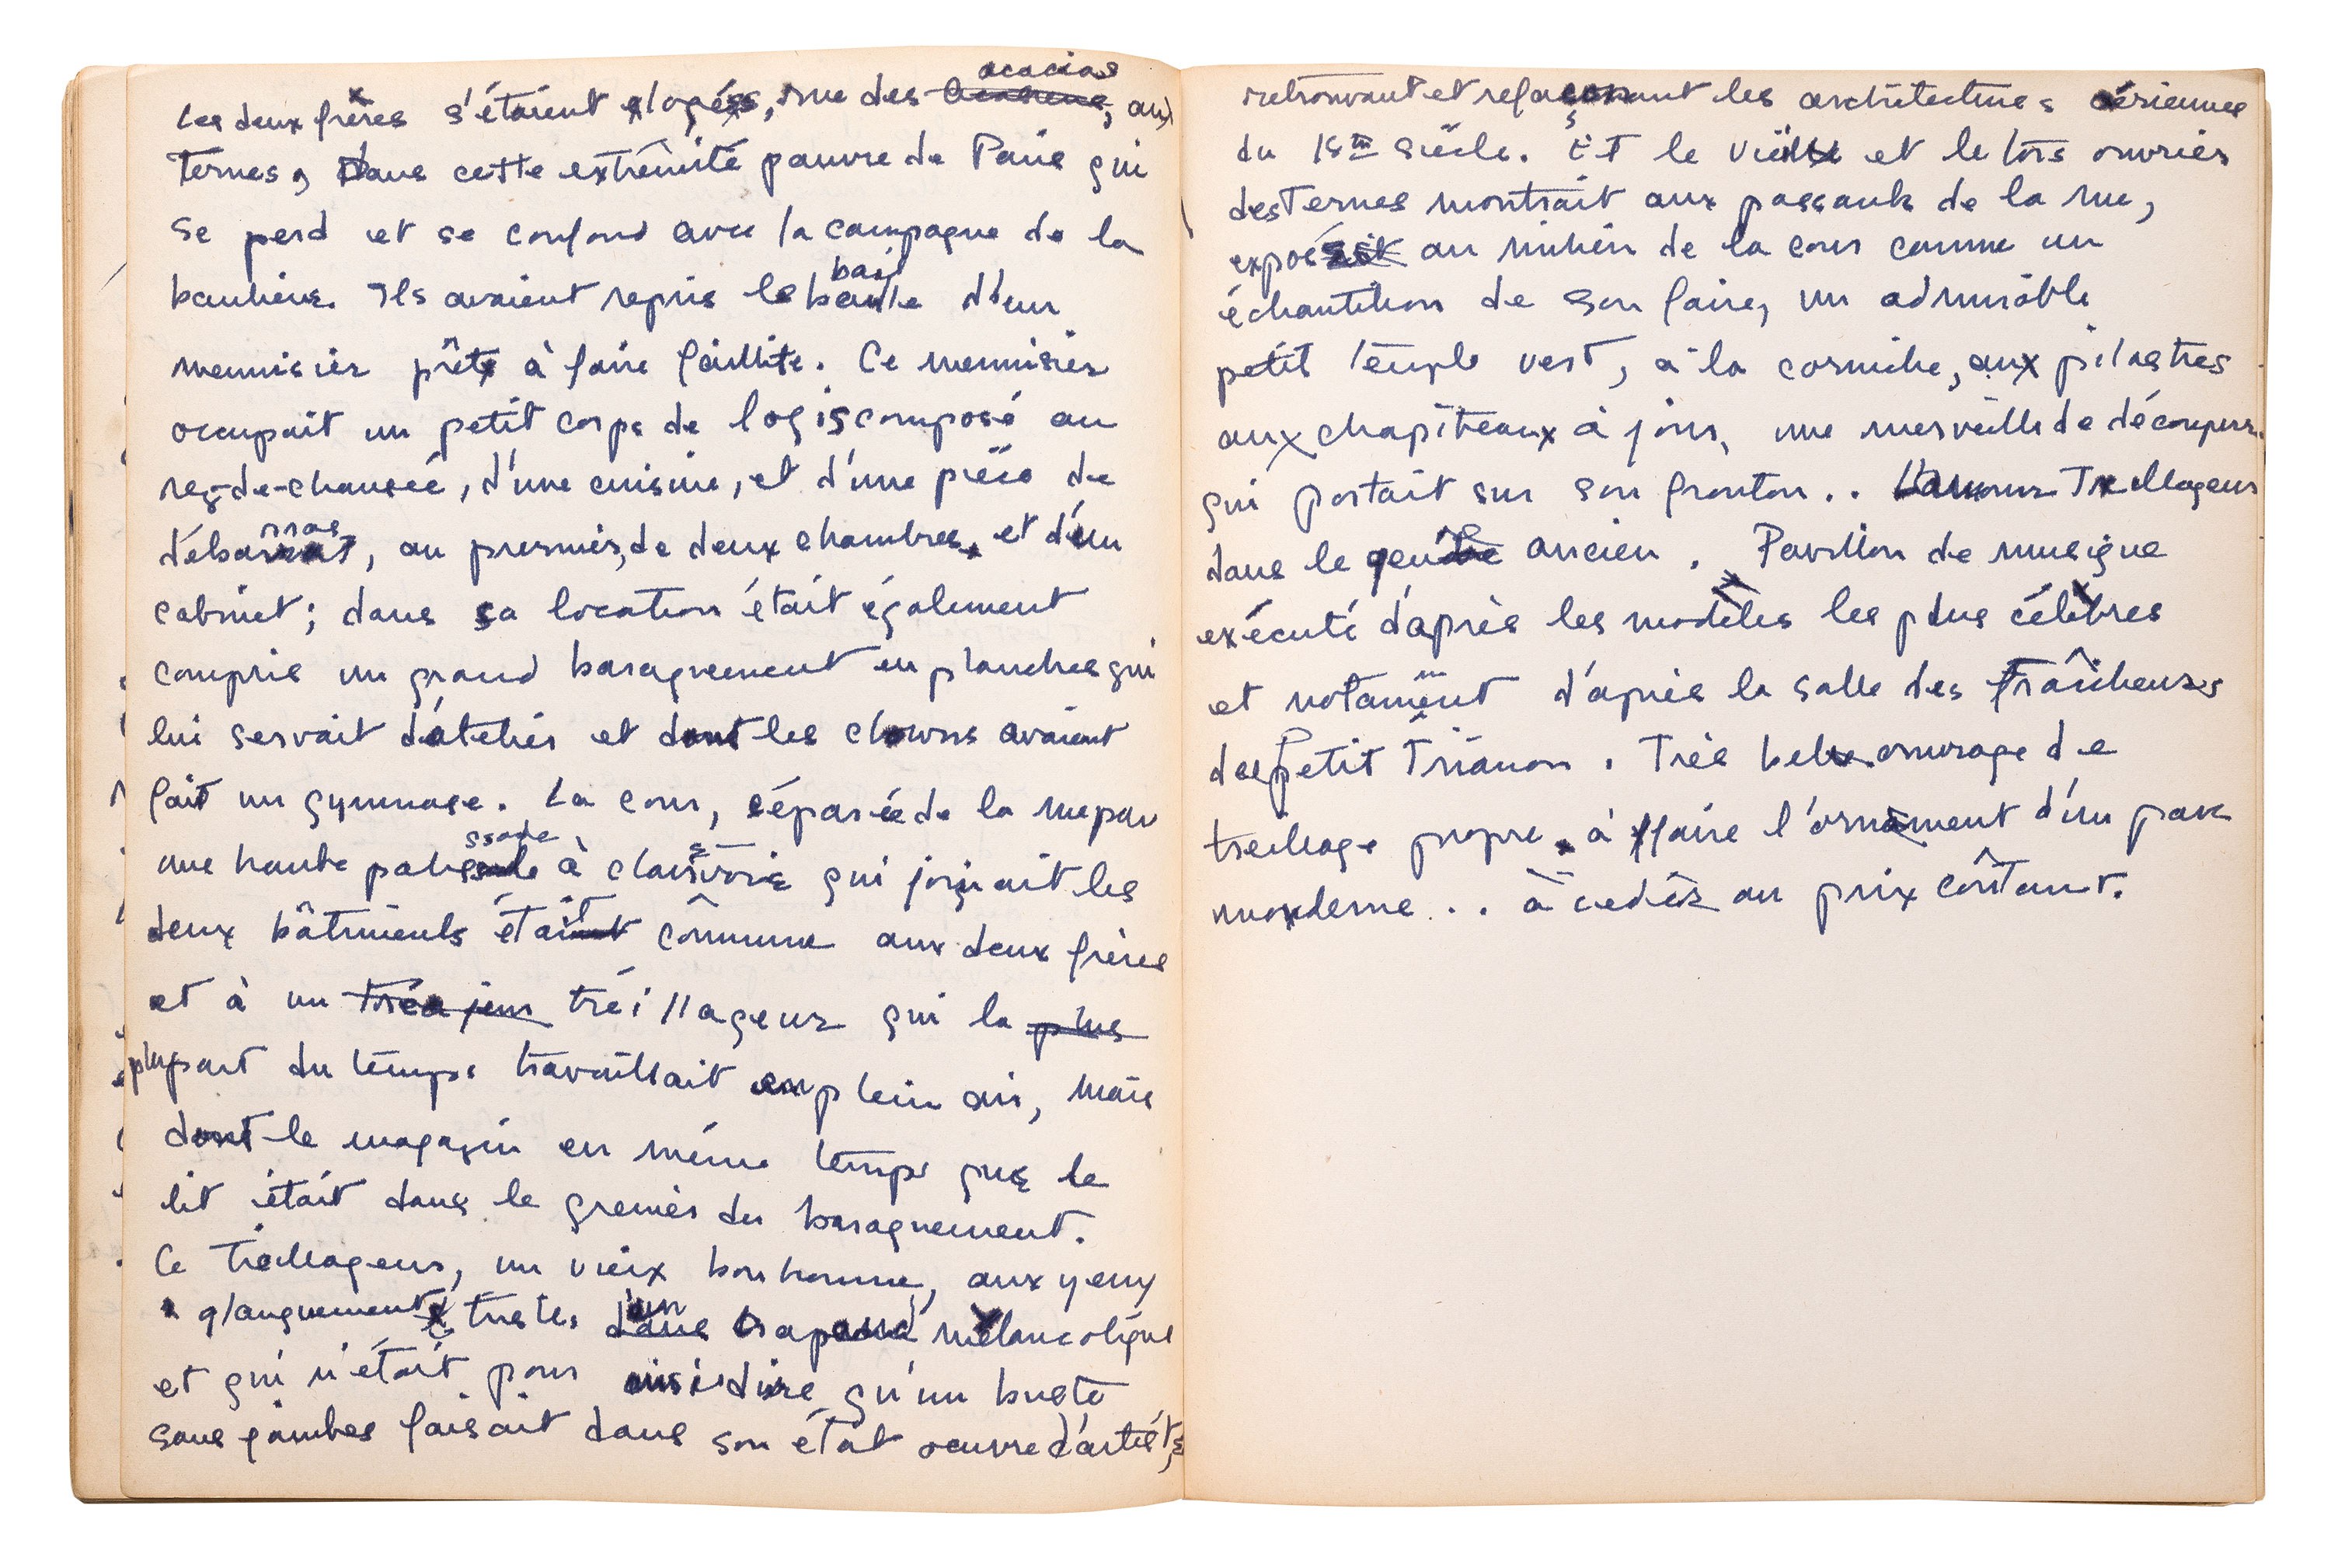 Les deux frères s'étaient logés, rue des acacias, aux
Ternes, dans cette extrêmité pauvre de Paris qui
se perd et se confond avec la campagne de la
banlieue. Ils avaient repris le bail d'un
menuisier prêt à faire faillite. Ce menuisier
occupait un petit corps de logis composé au
rez-de-chaussée, d'une cuisine, et d'une pièce de
débarras, au premier, de deux chambres et d'un
cabinet; dans sa location était également
compris un grand baraquement en planches qui
lui servait d'atelier et dont les clowns avaient
fait un gymnase. La cour, séparée de la rue par
une haute palissade à claire voie qui joignait les
deux bâtiments était commune aux deux frères
et à un tréillageur qui la
plupart du temps travaillait en plein air, mais
dont le magasin en même temps que le
lit était dans le grenier du baraquement.
Ce treillageur, un vieux bonhomme, aux yeux
glauquement tristes d'un crapaud mélancolique
et qui n'était pour ainsi dire qu'un buste
sans jambes faisait dans son état oeuvre d'artiste,
retrouvant et refaçonnant les architectures aériennes
du 18me siècle. Et le vieil et le tors ouvrier
des Ternes montrait aux passants de la rue,
exposé au milieu de la cour comme un
échantillon de son faire, un admirable
petit temple vert, à la corniche, aux pilastres
aux chapiteaux à jour, une merveille de découpure
qui portait sur son fronton.. Lamour Treillageur
dans le goût ancien. Pavillon de musique
exécuté d'après les modèles les plus célèbres
et notamment d'après la salle des fraîcheurs
du petit Trianon. Très bel ouvrage de
treillage propre à faire l'ornement d'un parc
moderne... à céder au prix coûtant.